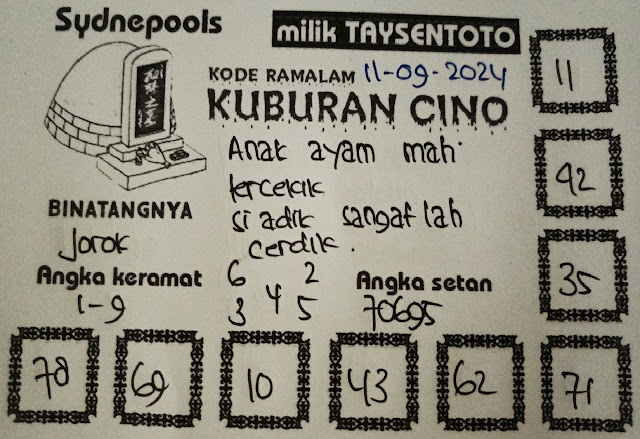 Sydnepools
milik TAYSENTOTO
KODE RAMALAM 11-09-2024
KUBURAN CINO
Anak ayam mah
tercekik
si adik sangat lah
cerdik.
BINATANGNYA
Jorok
Angka keramat
1-9
6 2
4
3 5
Angka setan
70695
11
92
35
78 69 10 43 62 71